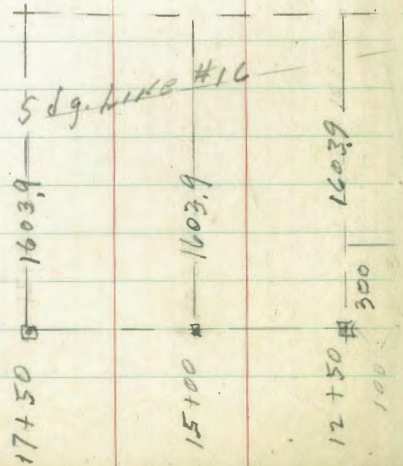 Sdg. Line #16
1603.9
1603.9
1603.9
300
17+50
15+00
12+50
100